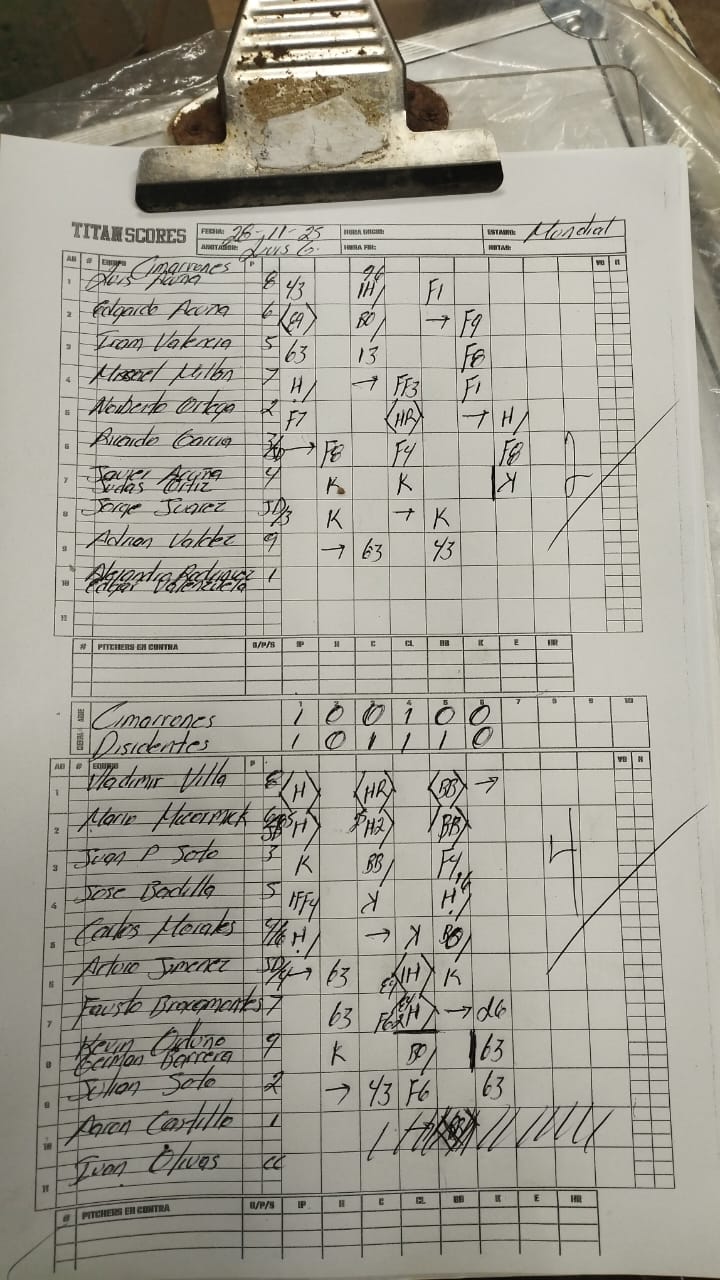 TITAN SCORES
FECHA: 26-11-25 HORA INICIO: ESTADIO: Mundial
ANOTADOR: Luis G. HORA FIN: NOTAS:
AB # EQUIPO P VB H
Cimarrones
1 Luis Acuña 8 43 1H F1
2 Edgardo Acuña 6 E9 BO → F9
3 Ivan Valencia 5 63 13 F8
4 Missael Millan 7 H → FF3 F1
5 Norberto Ortega 2 F7 HR → H
6 Ricardo Garcia → F8 F4 F8 2
7 Javier Acuña 4 K K K
Judas Ortiz
8 Jorge Juarez JD/3 K → K
9 Adrian Valdez 9 → 63 43
10 Alejandro Rodriguez 1
Edgar Valenzuela
11
# PITCHERS EN CONTRA D/P/S IP H C CL BB K E HR
1 2 3 4 5 6 7 8 9 10
Cimarrones 1 0 0 1 0 0
Disidentes 1 0 1 1 1 0
AB # EQUIPO P VB H
1 Vladimir Villa 8 H HR BB →
2 Mario Mccormick H H2 BB
3 Juan P Soto 3 K BB F4
4 Jose Badilla 5 IFF4 K H 4
5 Carlos Morales 4/6 H → K BO
6 Arturo Jimenez JD/4 → 63 1H K
7 Fausto Bracamontes 7 63 H → 26
8 Kevin Orduño 9 K BO 63
German Barrera
9 Julian Soto 2 → 43 F6 63
10 Aaron Castillo 1
11 Ivan Olivas
# PITCHERS EN CONTRA D/P/S IP H C CL BB K E HR